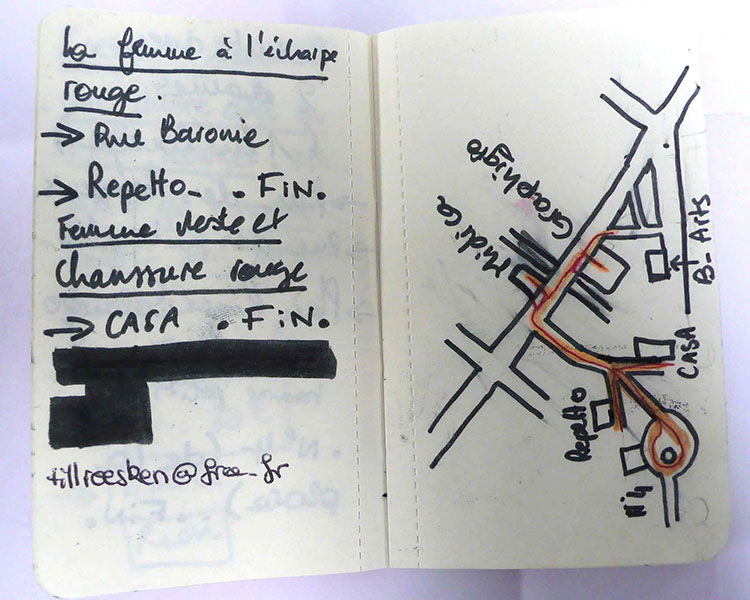 La femme à l'écharpe
rouge.
→ Rue Baronie
→ Repetto_ . FiN.
Femme veste et
Chaussure rouge
→ CASA . FiN.
tillroesken@free_fr
Graphigro
Midica
B_Arts
CASA
Repetto
N°4